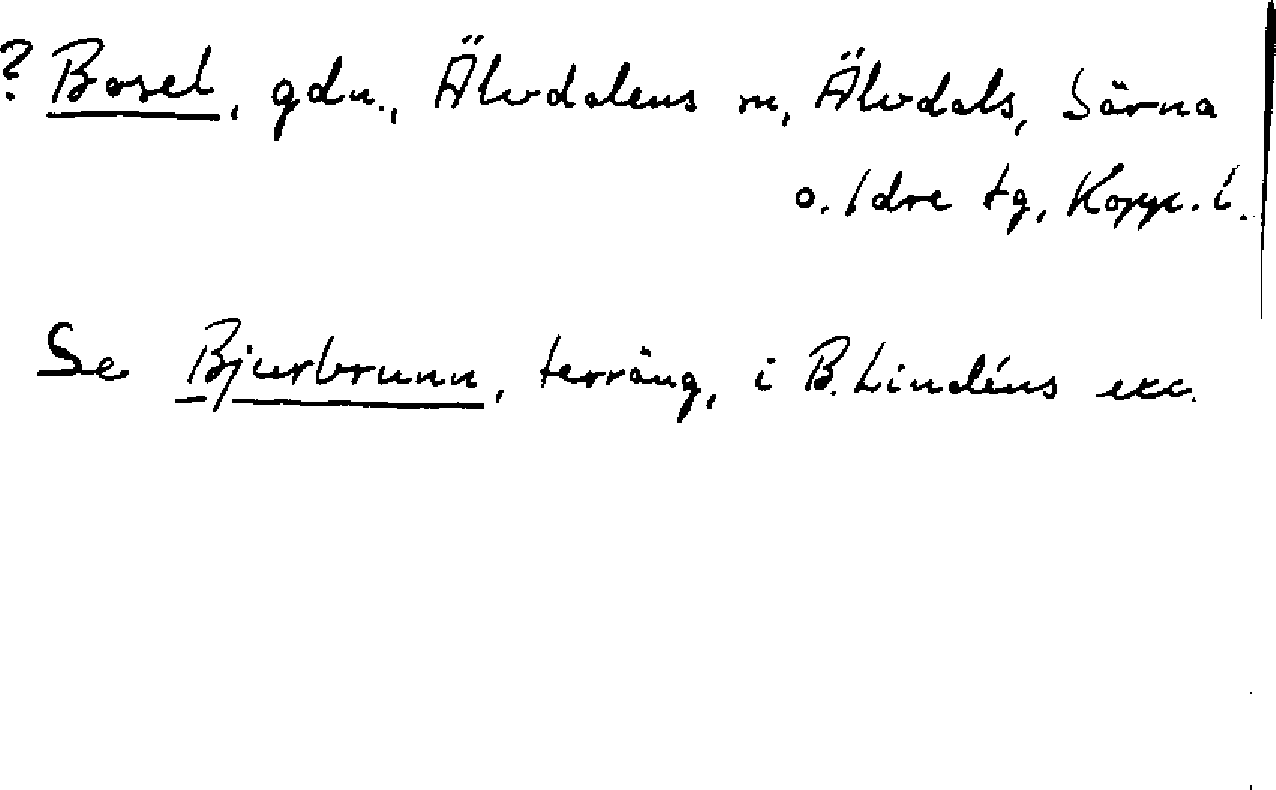 ? Bosel, gdn., Älvdalens sn, Älvdals, Särna
o. Idre tg, Kopp. l.
Se Bjurbrunn, terräng, i B. Lindéns exc.